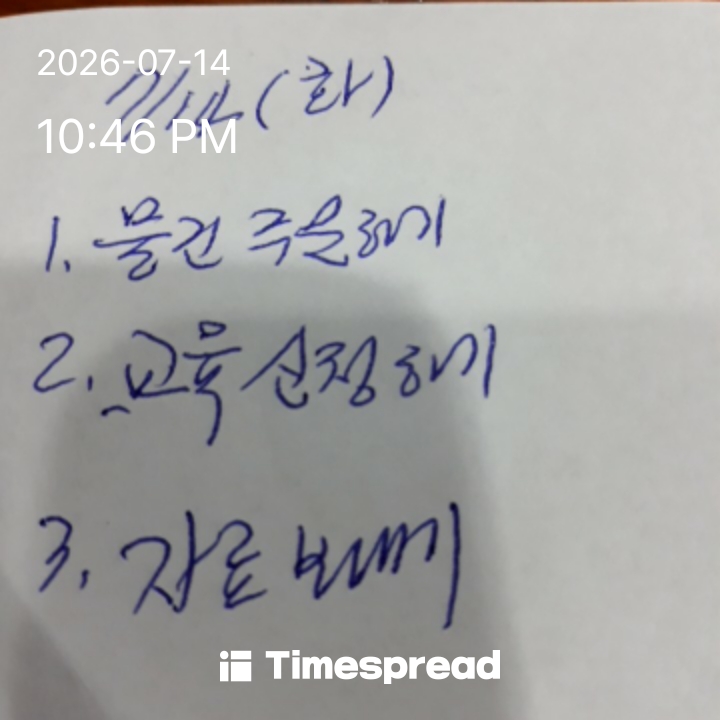 2026-07-14
7/14 (화)
10:46 PM
1. 물건 주문하기
2. 교육 신청하기
3. 자료 보내기
Timespread